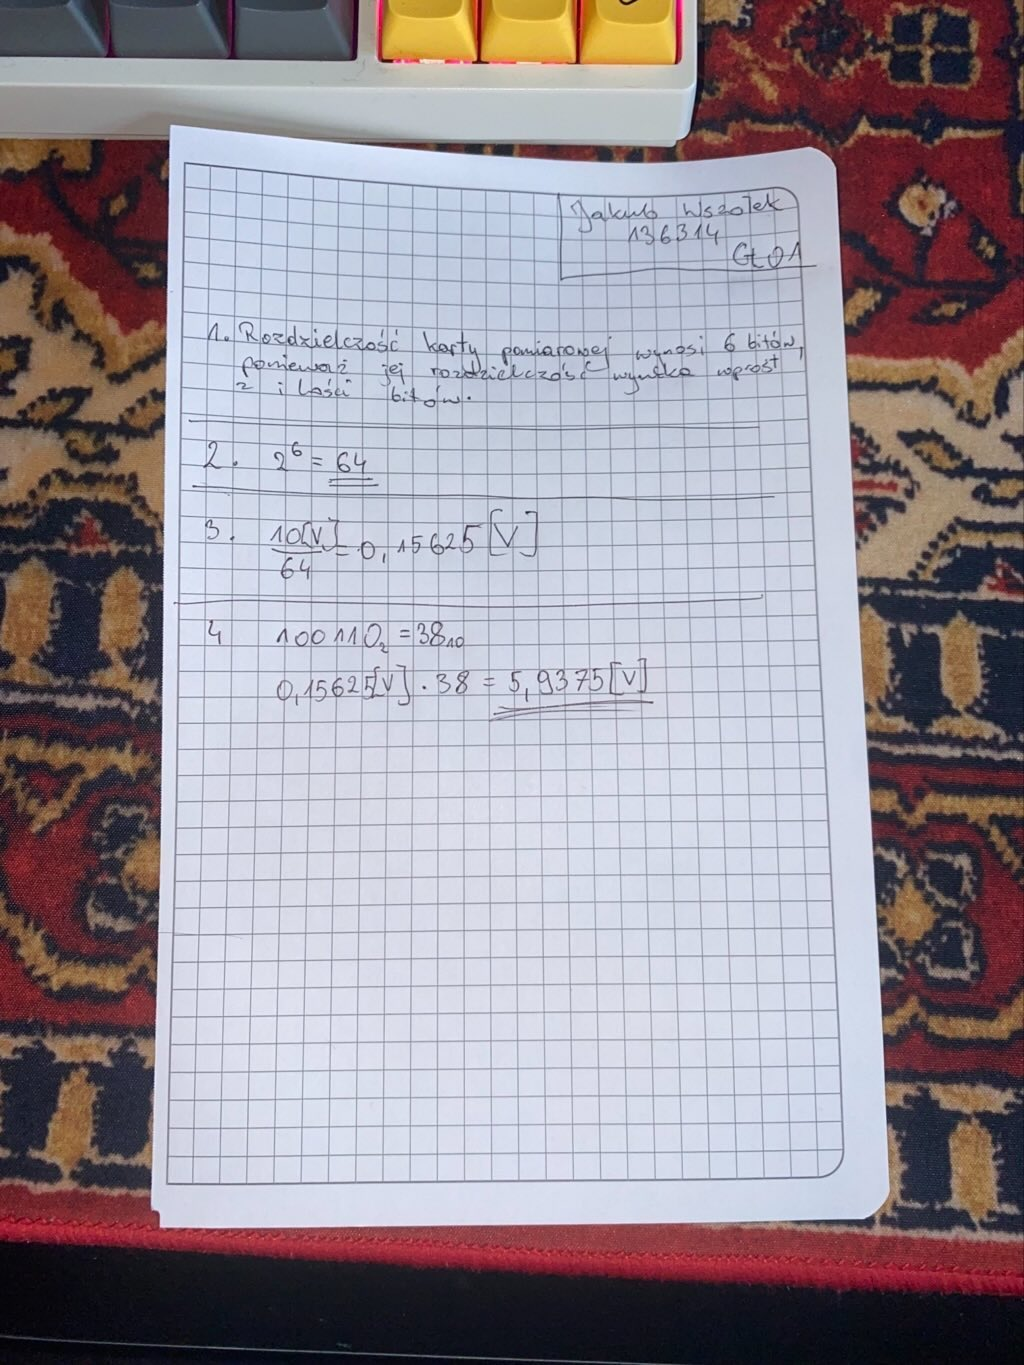 Jakub Wszołek
136314
GŁ01
1. Rozdzielczość karty pomiarowej wynosi 6 bitów,
ponieważ jej rozdzielczość wynika wprost
z ilości bitów.
2. 2⁶ = 64
3. 10[V]/64 = 0,15625 [V]
4 100110₂ = 38₁₀
0,15625[V] · 38 = 5,9375[V]